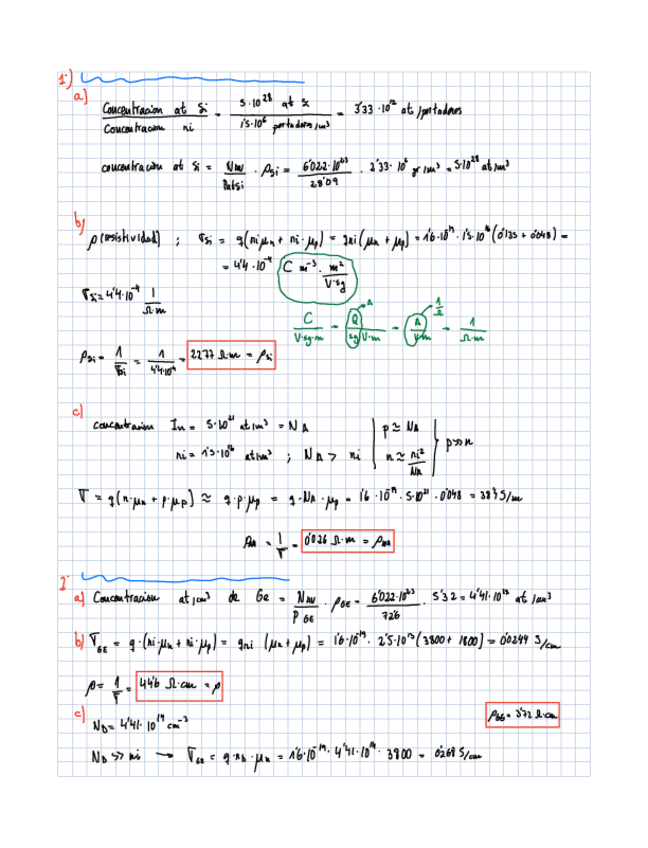 1)
a) Concentracion at Si / Concentracion ni = 5·10^28 at Si / 1'5·10^6 portadores/m³ = 3'33·10^12 at/portadores
concentracion at Si = N_AV / Pat Si · ρ_Si = 6'022·10^23 / 28'09 · 2'33·10^6 gr/m³ = 5·10^28 at/m³
b) ρ (resistividad) ; σ_Si = q(ni μn + ni·μp) = q ni (μn + μp) = 1'6·10^-19 · 1'5·10^16 (0'135 + 0'048) =
= 4'4·10^-4 C m^-3 · m² / V·sg
σ_Si = 4'4·10^-4 1 / Ω·m
C / V·sg·m = Q / sg V·m → A = A / V·m → 1/Ω = 1 / Ω·m
ρ_Si = 1 / σ_Si = 1 / 4'4·10^-4 = 2277 Ω·m = ρ_Si
c) concentracion In = 5·10^21 at/m³ = N_A | p ≃ N_A
ni = 1'5·10^16 at/m³ ; N_A > ni | n ≃ ni² / N_A } p>>n
σ = q(n·μn + p·μp) ≃ q·p·μp = q·N_A·μp = 1'6·10^-19 · 5·10^21 · 0'048 = 38'4 S/m
= 1 / σ = 0'026 Ω·m =
2.
a) Concentracion at/cm³ de Ge = N_AV / P_GE · ρ_GE = 6'022·10^23 / 72'6 · 5'32 = 4'41·10^22 at/cm³
b) σ_GE = q·(ni·μn + ni·μp) = q ni (μn + μp) = 1'6·10^-19 · 2'5·10^13 (3800 + 1800) = 0'0244 S/cm
ρ = 1 / σ = 44'6 Ω·cm = ρ
c) N_D = 4'41·10^14 cm^-3
ρ_GE = 3'72 Ω·cm
N_D >> ni → σ_GE = q·n_D·μn = 1'6·10^-19 · 4'41·10^14 · 3800 = 0'268 S/cm